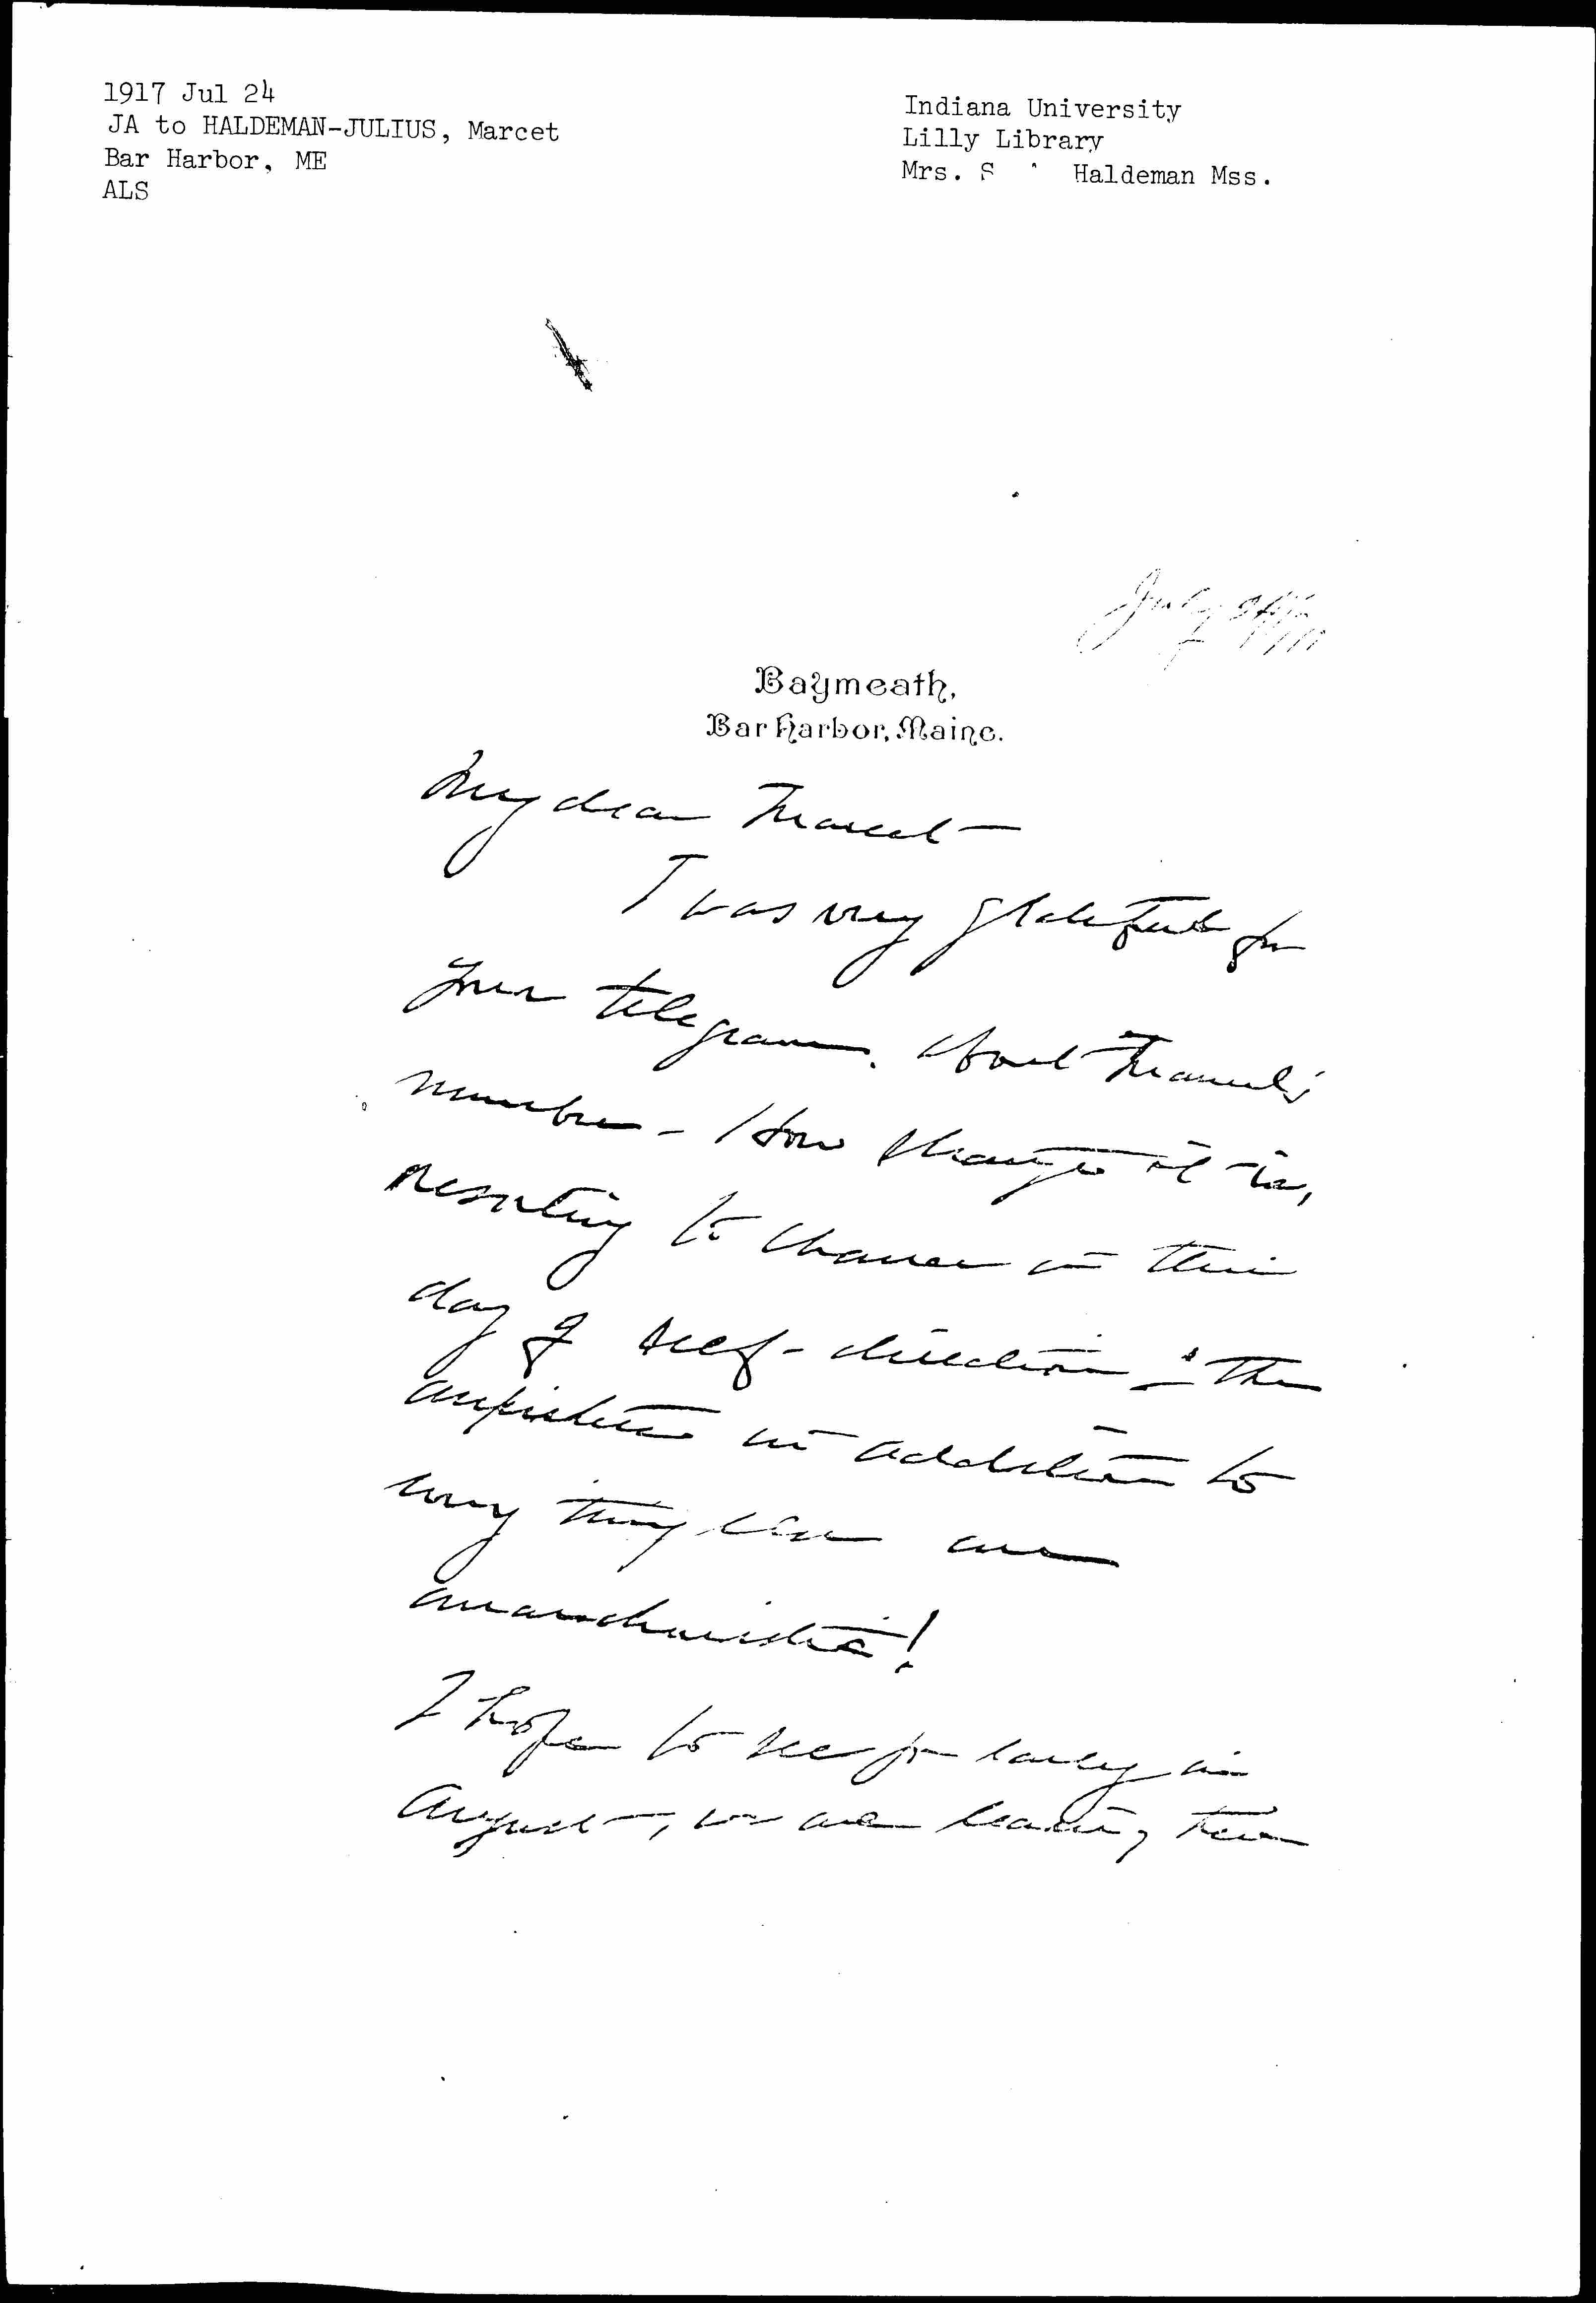 1917 Jul 24
JA to HALDEMAN-JULIUS, Marcet
Bar Harbor, ME
ALS
Indiana University
Lilly Library
Mrs. S Haldeman Mss.
July 24"
1917
Baymeath,
Bar Harbor, Maine.
My dear Marcet —
I was very grateful for
your telegram. about Manuel's
number - How strange it is,
resorting to chance in this
day of self-direction - The
in addition to
every thing else are
anarchistic!
I hope to see you early in
August —, we are leaving here